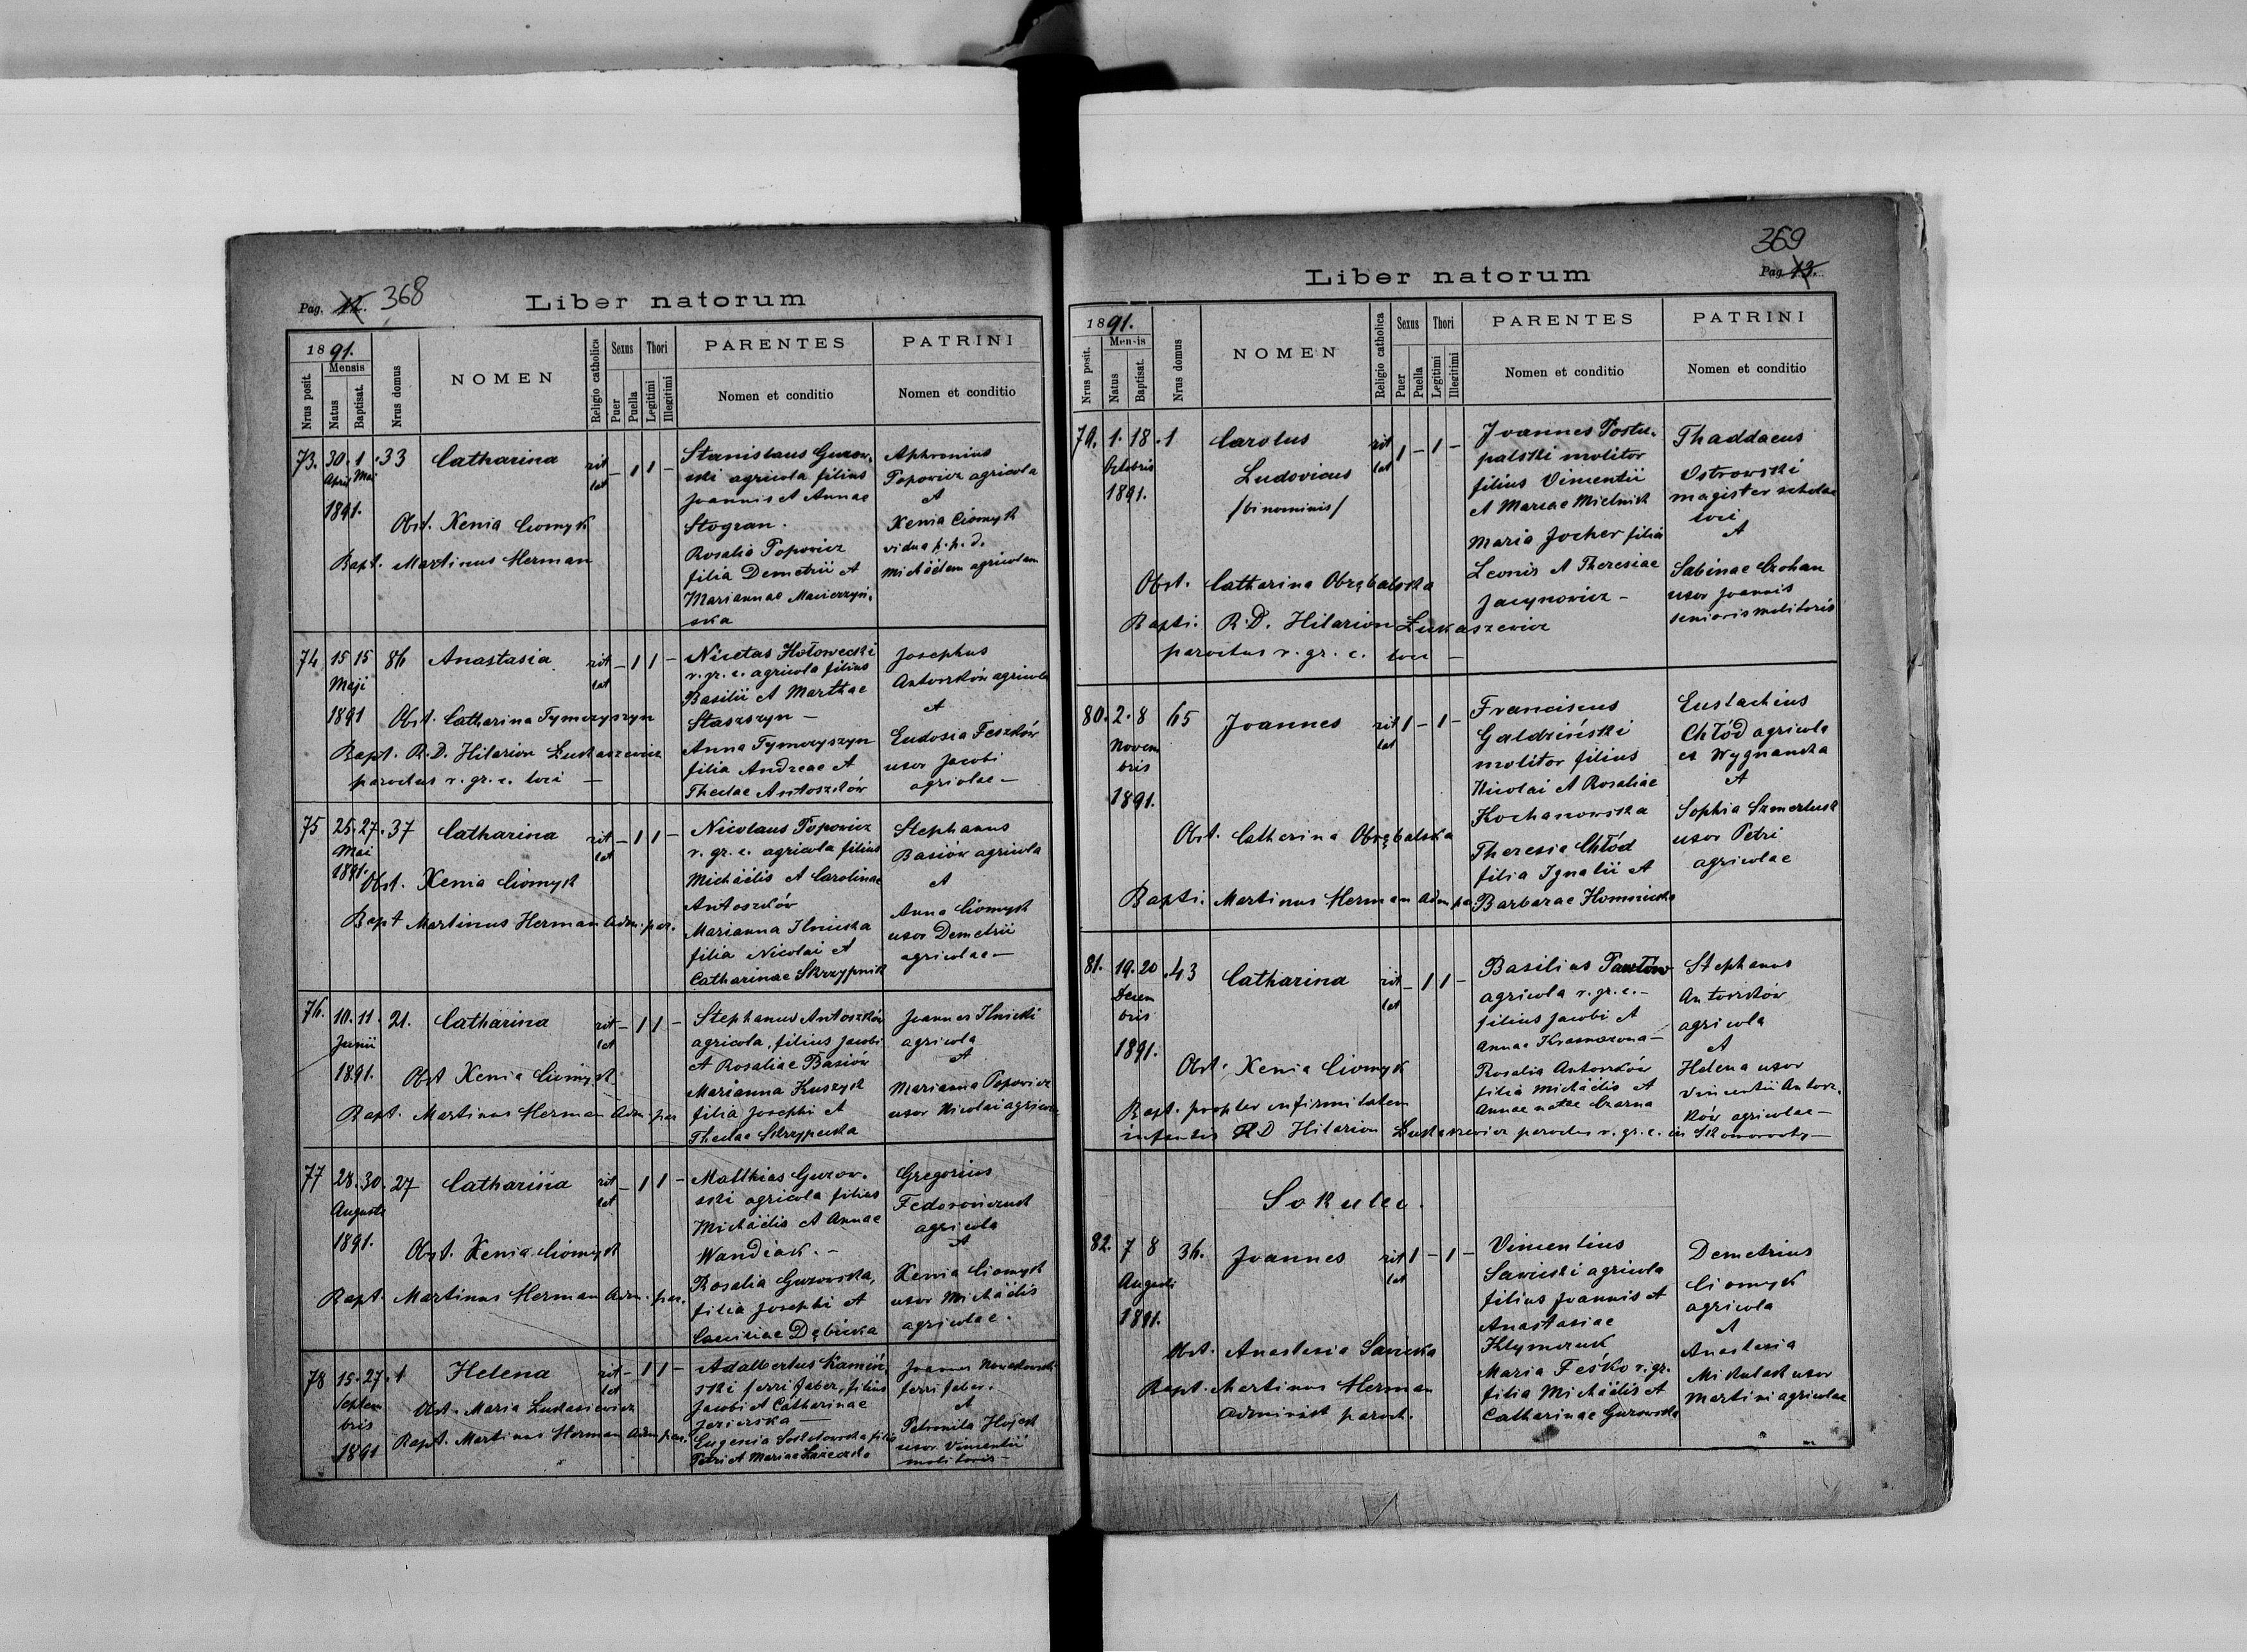 Pag. 12. 368
Liber natorum
1891.
Mensis
Nrus posit.
Natus
Baptisat.
Nrus domus
NOMEN
Religio catholica
Sexus
Puer
Puella
Thori
Legitimi
Illegitimi
PARENTES
Nomen et conditio
PATRINI
Nomen et conditio
73. 30. 1 33 Catharina rit lat – 1 1 –
April Mai
1891.
Obst. Xenia Ciomyk
Bapt. Martinus Herman
Stanislaus Gurow-
ski agricola filius
Joannis et Annae
Stogran.
Rosalia Popowicz
filia Demetrii et
Mariannae Macierzyń-
ska
Aphronius
Popowicz agricola
et
Xenia Ciomyk
vidua p. p. d.
Michäelem agricolam
74 15 15 86 Anastasia rit lat – 1 1 –
Maji
1891 Obst. Catharina Tymczyszyn
Bapt. R. D. Hilarion Łukaszewicz
parochus r. gr. c. loci –
Nicetas Hołowecki
r. gr. c. agricola filius
Basilii et Marthae
Staszszyn –
Anna Tymczyszyn
filia Andreae et
Theclae Antoszków
Josephus
Antoszków agricola
et
Eudosia Feszków
uxor Jacobi
agricolae –
75 25. 27. 37 Catharina rit lat – 1 1 –
Mai
1891. Obst. Xenia Ciomyk
Bapt Martinus Herman Adm. par.
Nicolaus Popowicz
r. gr. c. agricola filius
Michäelis et Carolinae
Antoszków
Marianna Ilnicka
filia Nicolai et
Catharinae Skrzypnik
Stephanus
Basiów agricola
et
Anna Ciomyk
uxor Demetrii
agricolae –
76. 10. 11. 21. Catharina rit lat – 1 1 –
Junii
1891. Obst Xenia Ciomyk
Bapt. Martinus Herman Adm. par
Stephanus Antoszków
agricola, filius Jacobi
et Rosaliae Basiów
Marianna Kuszyk
filia Josephi et
Theclae Skrzypecka
Joannes Ilnicki
agricola
et
Marianna Popowicz
uxor Nicolai agricolae
77 28. 30. 27 Catharina rit lat – 1 1 –
Augusti
1891. Obst. Xenia Ciomyk
Bapt. Martinus Herman Adm. par.
Matthias Gurow-
ski agricola filius
Michäelis et Annae
Wandiak. –
Rosalia Gurowska,
filia Josephi et
Caeciliae Dębicka
Gregorius
Fedorowicz
agricola
et
Xenia Ciomyk
uxor Michäelis
agricolae.
78 15. 27. 1 Helena rit lat – 1 1 –
Septem
bris
1891
Obst. Maria Lukasiewicz
Bapt. Martinus Herman Adm par.
Adalbertus Kamiń-
ski ferri faber, filius
Jacobi et Catharinae
Jezierska –
Eugenia filia
Petri et Mariae
Joannes Nowakowski
ferri faber.
et
Petronila
uxor Vincentii
molitoris –
369
Pag. 13.
Liber natorum
1891.
Mensis
Nrus posit.
Natus
Baptisat.
Nrus domus
NOMEN
Religio catholica
Sexus
Puer
Puella
Thori
Legitimi
Illegitimi
PARENTES
Nomen et conditio
PATRINI
Nomen et conditio
79. 1. 18. 1 Carolus rit lat 1 – 1 –
Octobris Ludovicus
1891. /binominis/
Obst. Catharina Obrębalska
Bapti. R. D. Hilarion Łukaszewicz
parochus r. gr. c. loci –
Joannes Postu-
palski molitor
filius Vincentii
et Mariae Mielnik
Maria Jocher filia
Leonis et Theresiae
Jacynowicz –
Thaddaeus
Ostrowski
magister scholae
loci
et
Sabinae Czohan
uxor Joannis
senioris molitoris
80. 2. 8 65 Joannes rit lat 1 – 1 –
Novem
bris
1891.
Obst. Catherina Obrębalska
Bapti. Martinus Herman Adm par
Franciscus
Galdziński
molitor filius
Nicolai et Rosaliae
Kochanowska
Theresia Chłód
filia Ignatii et
Barbarae Homnicka
Eustachius
Chłód agricola
ex Wygnanka
et
Sophia Szmerluk
uxor Petri
agricolae
81. 19. 20 43 Catharina rit lat – 1 1 –
Decem
bris
1891. Obst. Xenia Ciomyk
Bapt. propter infirmitatem
infantis R D Hilarion Łukaszewicz parochus r. gr. c. in Skomorochy –
Basilius Pawłów
agricola r. gr. c. –
filius Jacobi et
Annae –
Rosalia Antoszków
filia Michäelis et
Annae natae Czarna
Stephanus
Antoszków
agricola
et
Helena uxor
Vincentii Antosz-
ków agricolae –
Sokulec.
82. 7 8 36. Joannes rit lat 1 – 1 –
Augusti
1891.
Obst. Anastasia Sawicka
Bapt. Martinus Herman
Administ paroch.
Vincentius
Sawicki agricola
filius Joannis et
Anastasiae
Klymczuk
Maria Feśko r. gr.
filia Michäelis et
Catharinae Gurowska
Demetrius
Ciomyk
agricola
et
Anastasia
Mikulak uxor
Martini agricolae